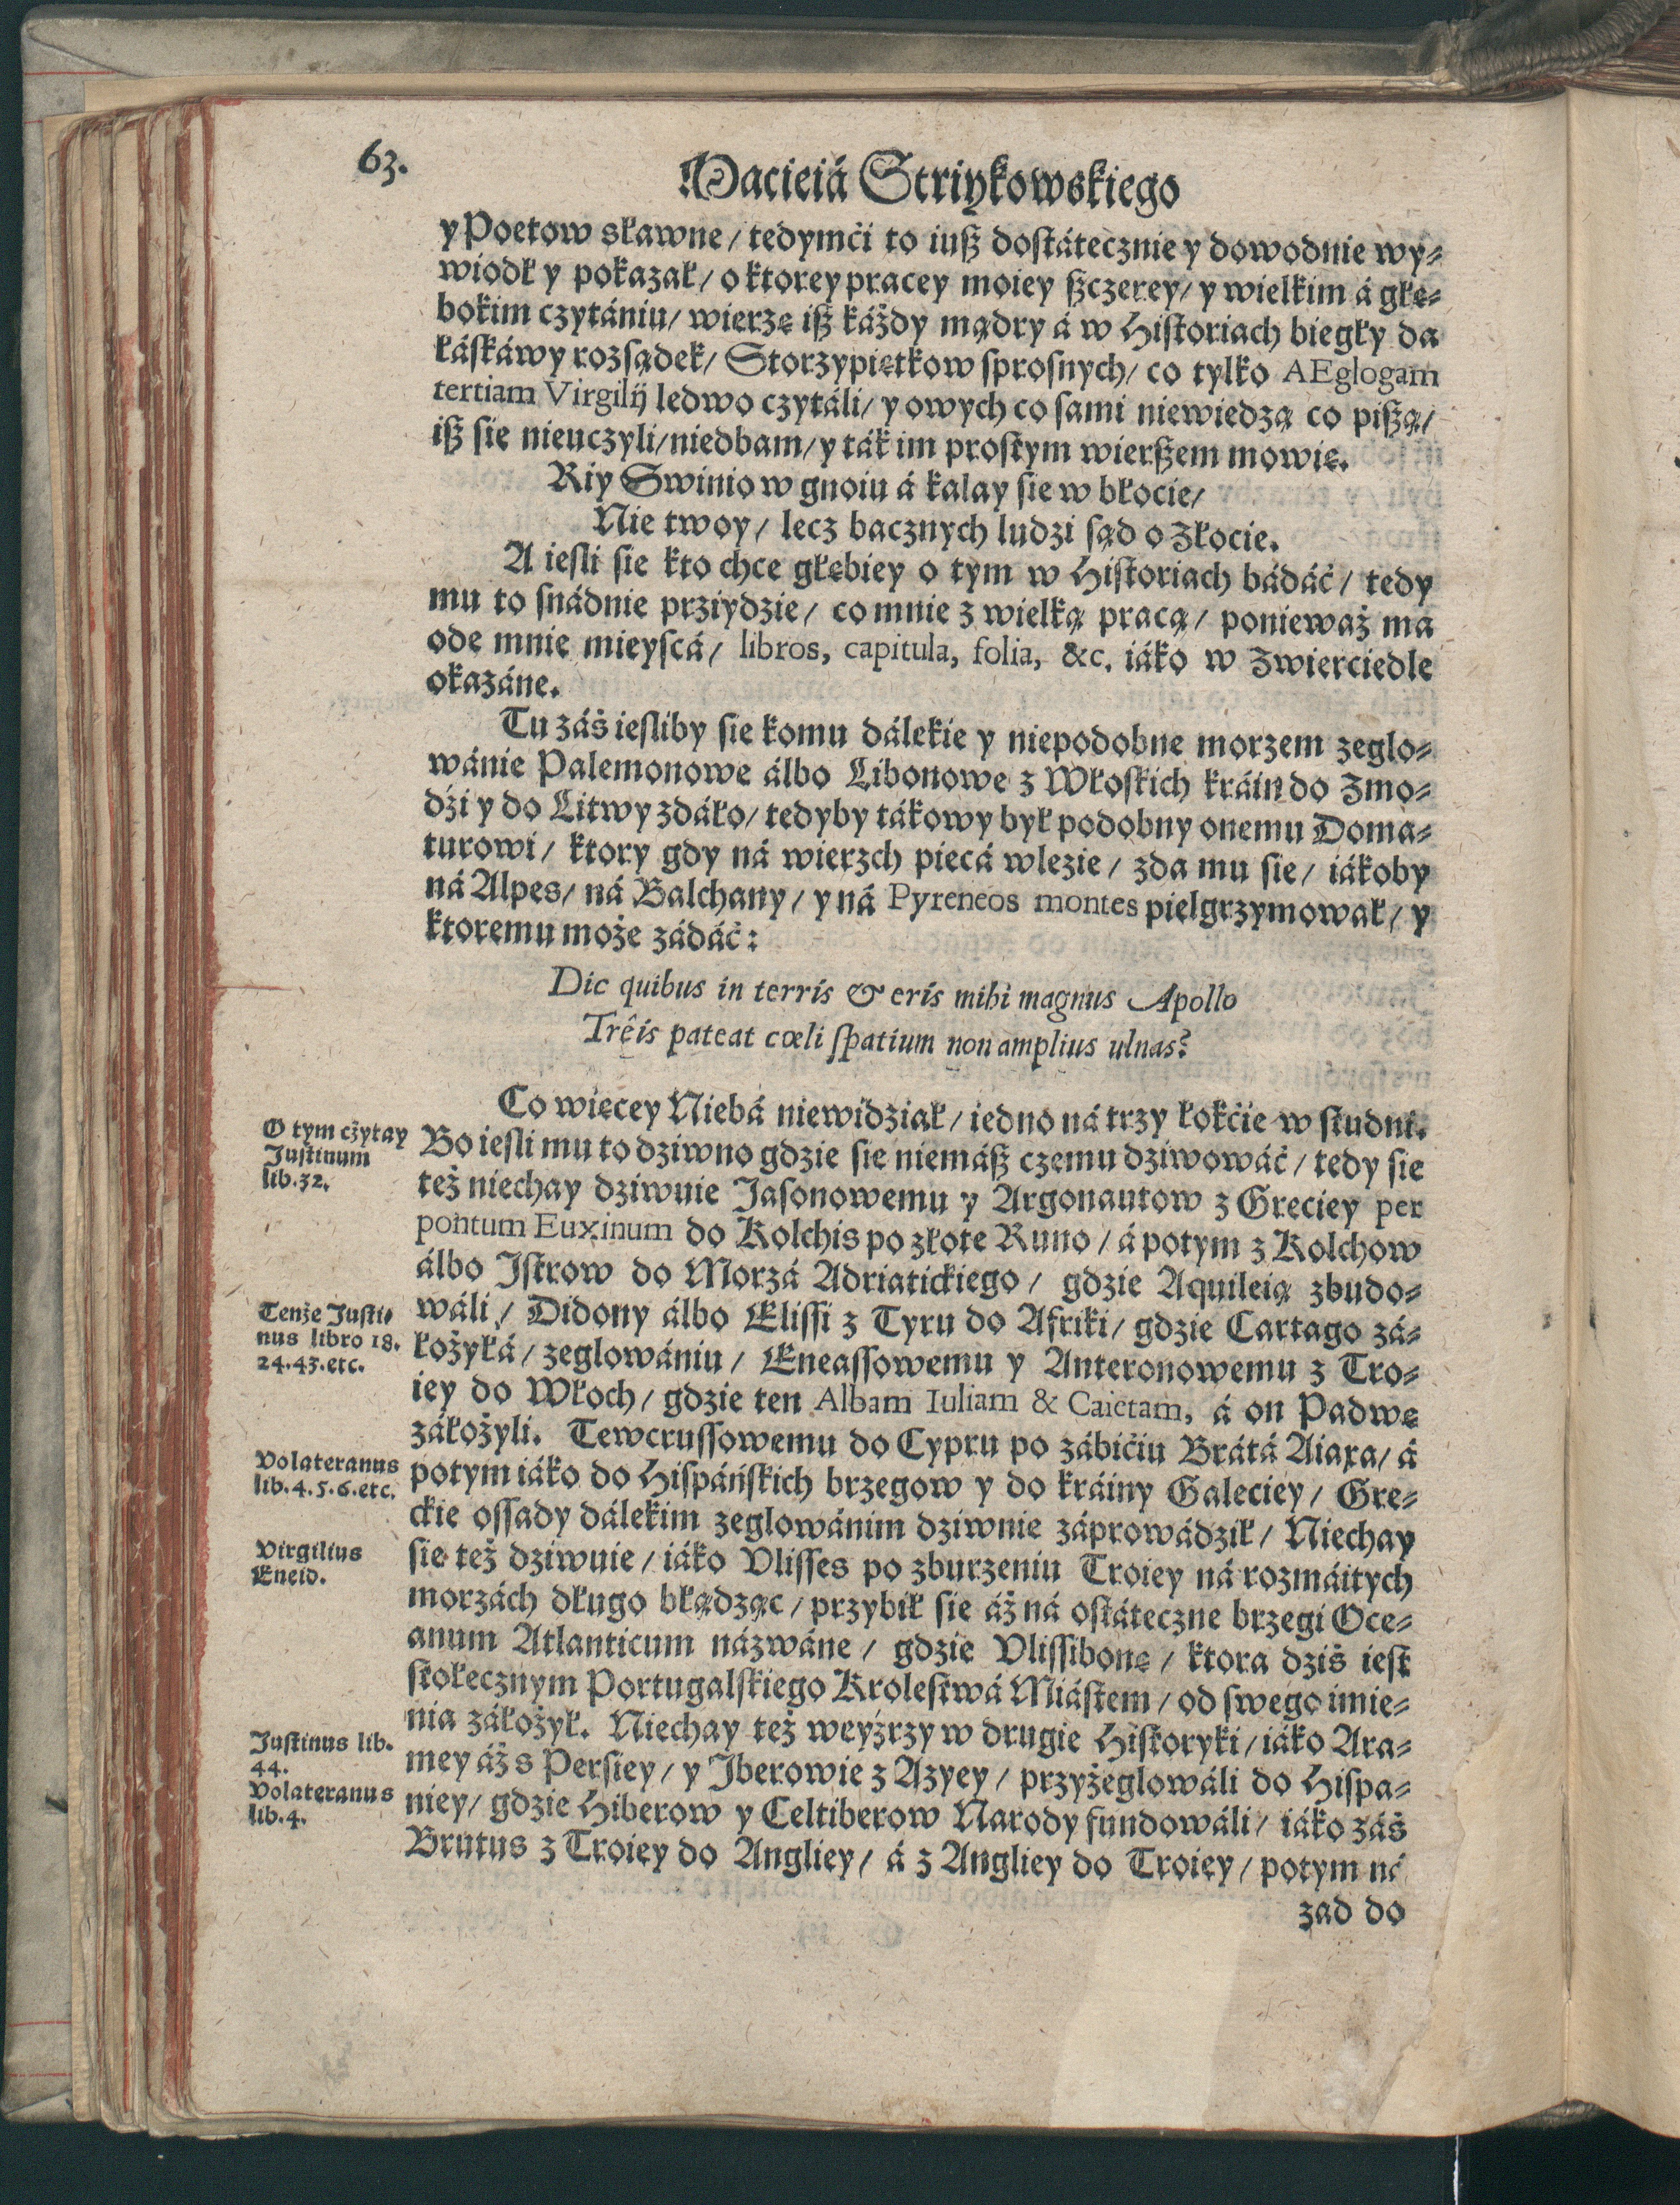 63.
Macieiá Striykowskiego
y Poetow sławne / tedymći to iuß dostátecznie y dowodnie wy-
wiodł y pokazał / o ktorey pracey moiey ßczerey / y wielkim á głę-
bokim czytániu / wierzę iß káżdy mądry á w Historiach biegły da
łáskáwy rozsądek / Storzypiętkow sprosnych / co tylko AEglogam
tertiam Virgilij ledwo czytáli / y owych co sami niewiedzą co pißą /
iß się nieuczyli / niedbam / y ták im prostym wierßem mowię.
Riy Swinio w gnoiu á kalay sie w błocie /
Nie twoy / lecz bacznych ludzi sąd o Złocie.
A iesli sie kto chce głębiey o tym w Historiach bádáć / tedy
mu to snádnie prziydzie / co mnie z wielką pracą / ponieważ ma
ode mnie mieyscá / libros, capitula, folia, &c. iáko w Zwierciedle
okazáne.
Tu záś iesliby sie komu dálekie y niepodobne morzem zeglo-
wánie Palemonowe álbo Libonowe z Włoskich kráin do Zmo-
dźi y do Litwy zdáło / tedyby tákowy był podobny onemu Doma-
turowi / ktory gdy ná wierzch piecá wlezie / zda mu sie / iákoby
ná Alpes / ná Balchany / y ná Pyreneos montes pielgrzymował / y
ktoremu może zádáć:
Dic quibus in terris & eris mihi magnus Apollo
Trêis pateat cœli spatium non amplius ulnas?
Co więcey Niebá niewidział / iedno ná trzy łokćie w studni.
O tym czytay
Justinum
lib. 32.
Bo iesli mu to dziwno gdzie sie niemáß czemu dziwowáć / tedy sie
też niechay dziwuie Jasonowemu y Argonautow z Greciey per
pontum Euxinum do Kolchis po złote Runo / á potym z Kolchow
álbo Istrow do Morzá Adriatickiego / gdzie Aquileią zbudo-
Tenże Justi-
nus libro 18.
24. 43. etc.
wáli / Didony álbo Elissi z Tyru do Afriki / gdzie Cartago zá-
łożyłá / zeglowániu / Eneassowemu y Anteronowemu z Tro-
iey do Włoch / gdzie ten Albam Iuliam & Caietam, á on Padwę
záłożyli. Tewcrussowemu do Cypru po zábićiu Brátá Aiaxa / á
Volateranus
lib. 4. 5. 6. etc.
potym iáko do Hispáńskich brzegow y do kráiny Galeciey / Gre-
ckie ossady dálekim zeglowánim dziwnie záprowádził / Niechay
Virgilius
Eneid.
sie też dziwuie / iáko Vlisses po zburzeniu Troiey ná rozmáitych
morzách długo błądząc / przybił sie áż ná ostáteczne brzegi Oce-
anum Atlanticum názwáne / gdzie Vlissibonę / ktora dziś iest
stołecznym Portugalskiego Krolestwá Miástem / od swego imie-
nia záłożył. Niechay też weyźrzy w drugie Historyki / iáko Ara-
Justinus lib.
44.
Volateranus
lib. 4.
mey áż s Persiey / y Jberowie z Azyey / przyżeglowáli do Hispa-
niey / gdzie Hiberow y Celtiberow Narody fundowáli / iáko záś
Brutus z Troiey do Angliey / á z Angliey do Troiey / potym ná
zad do